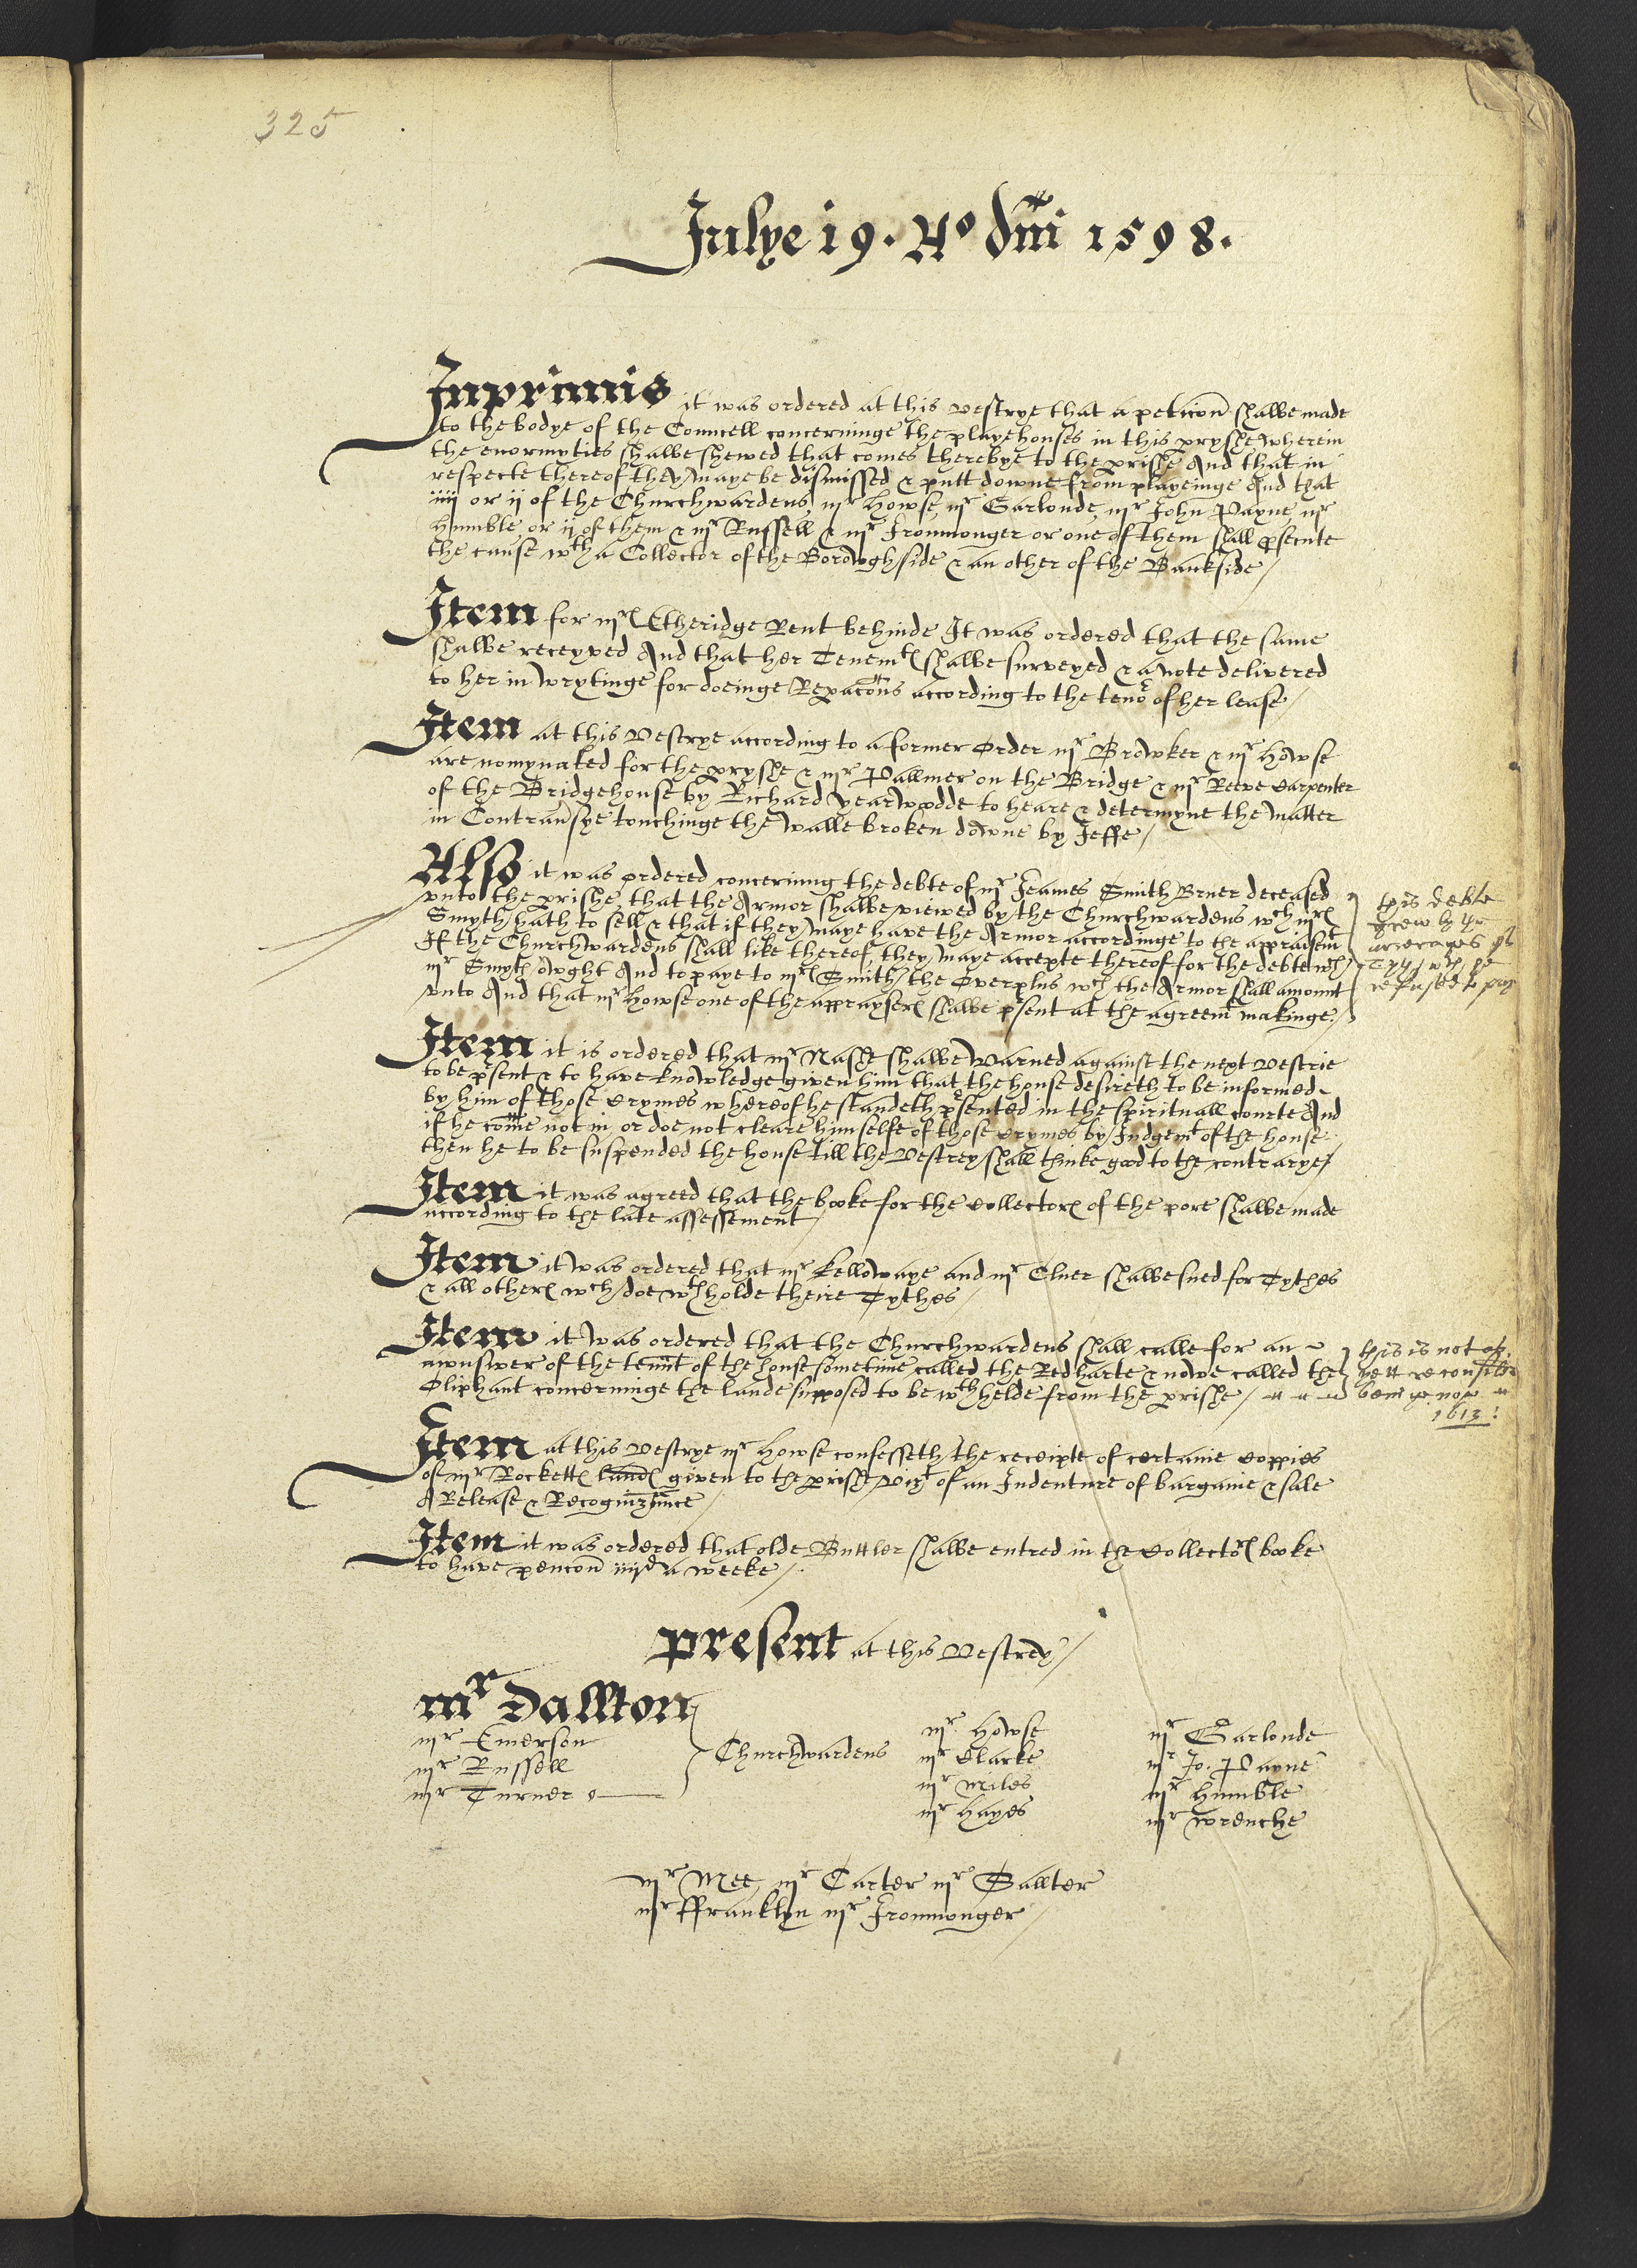 325
Julye 19. Ao dni 1598.
Inprimis it was ordered at this vestrye that a peticon shalbe made
to the bodye of the Councell concerninge the playehouses in this pryshe, wherein
the enormyties shalbe shewed that comes therebye to the prishe And that in
respecte thereof they maye be dismissed & putt downe from playeinge And that
iiij or ij of the Churchwardens, mr Howse, mr Garlonde, mr John Payne, mr
Humble or ij of them & mr Russell & mr Ironmonger or one of them shall psecute
the cause wth a Collector of the Borowghside & an other of the Bankside /
Item for mrs Etheridge Rent behinde It was ordered that the same
shalbe receyved And that her Tenemts shalbe surveyed & a note delivered
to her in wrytinge for doeinge Repacons according to the tenor of her lease /
Item at this Vestrye according to a former Order mr Browker & mr Howse
are nomynated for the pryshe & mr Pallmer on the Bridge & mr Reeve Carpenter
of the Bridgehouse by Richard yearwodde to heare & determyne the matter
in Contrausye touchinge the walle broken downe by Jeffe /
Also it was ordered concerning the debte of mr Jeames Smith Bruer deceased
vnto the prishe, that the Armor shalbe viewed by the Churchwardens wch mrs
Smyth hath to sell & that if they maye have the Armor accordinge to the appraisemt
If the Churchwardens shall like thereof, they maye accepte thereof for the debte wch
mr Smyth owght And to paye to mrs Smith the Overplus wch the Armor shall amount
vnto And that mr Howse one of the appraysers shalbe psent at the agreemt makinge.
this debte
grew by ye
arrerages of
Tyth wch he
refused to pay
Item it is ordered that mr Nashe shalbe warned against the next vestrie
to be psent & to have knowledge given him that the house desireth to be informed
by him of those crymes whereof he standeth psented in the spirituall courte And
if he come not in or doe not cleare himselfe of those crymes by Judgemt of the house
then he to be suspended the house till the Vestrey shall thinke good to the contrarye /
Item it was agreed that the booke for the Collectors of the pore shalbe made
according to the late assessement /
Item it was ordered that mr Kellowaye and mr Elner shalbe sued for Tythes
& all others wch doe wthholde theire Tythes /
Item it was ordered that the Churchwardens shall calle for an
awnswer of the tenmt of the house sometime called the Redharte & nowe called the
Oliphant concerninge the lande supposed to be wthhelde from the prishe /
this is not as
yett
beinge now
1613:
Item at this Vestrye mr Howse confesseth the receipte of certaine Coppies
of mr Rocketts lands given to the prishe vizt of an Indenture of bargaine & sale
A Release & Recognizance /
Item it was ordered that olde Buttler shalbe entred in the Collectors booke
to have pencon iiijd a weeke /
present at this Vestrey /
mr Dallton
mr Emerson
mr Russell
mr Turner
Churchwardens
mr Howse
mr Clarke
mr Miles
mr Hayes
mr Garlonde
mr Jo. Payne
mr Humble
mr wrenche
mr Mee, mr Carter mr Sallter
mr ffranklyn mr Ironmonger /